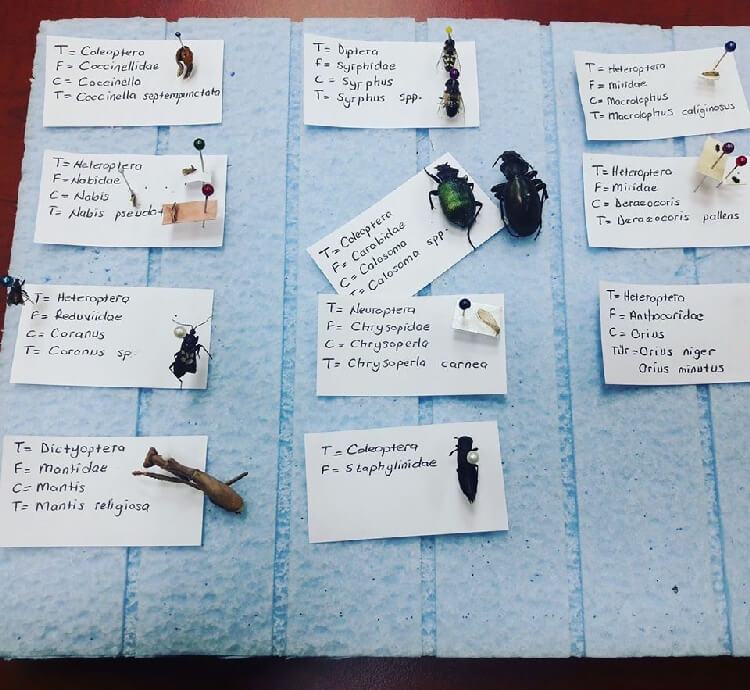 T= Coleoptera
F= Coccinellidae
C= Coccinella
T= Coccinella septempunctata
T= Diptera
F= Syrphidae
C= Syrphus
T= Syrphus spp.
T= Heteroptera
F= Miridae
C= Macrolophus
T= Macrolophus caliginosus
T= Heteroptera
F= Nabidae
C= Nabis
T= Nabis
T= Coleoptera
F= Carabidae
C= Calosoma
T= Calosoma spp.
T= Heteroptera
F= Miridae
C= Deraeocoris
T= Deraeocoris pallens
T= Heteroptera
F= Reduviidae
C= Coranus
T= Coranus sp.
T= Neuroptera
F= Chrysopidae
C= Chrysoperla
T= Chrysoperla carnea
T= Heteroptera
F= Anthocoridae
C= Orius
Tür= Orius niger
Orius minutus
T= Dictyoptera
F= Mantidae
C= Mantis
T= Mantis religiosa
T= Coleoptera
F= Staphylinidae